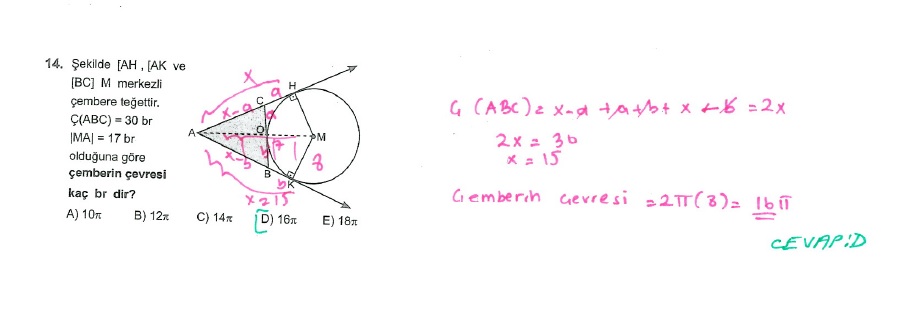 14. Şekilde [AH , [AK ve
[BC] M merkezli
çembere teğettir.
Ç(ABC) = 30 br
|MA| = 17 br
olduğuna göre
çemberin çevresi
kaç br dir?
A) 10π B) 12π C) 14π D) 16π E) 18π
x
H
a
C
x-a
a
A
O
M
17
x-b
b
8
B
b
K
x=15
Ç (ABC) = x-a +a+b+ x -b = 2x
2x = 30
x = 15
Çemberin çevresi = 2π(8) = 16π
CEVAP:D